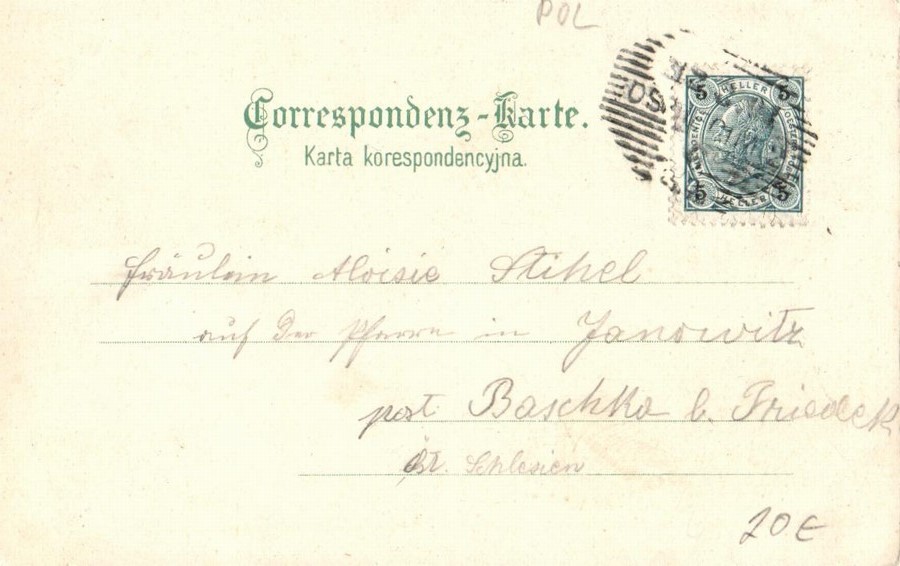 POL
Correspondenz-Karte.
Karta korespondencyjna.
5 HELLER 5
5 HELLER 5
Fräulein Aloisie Stihel
auf der Pfarre in Janowitz
post Baschka b. Friedek
Öst. Schlesien
20€